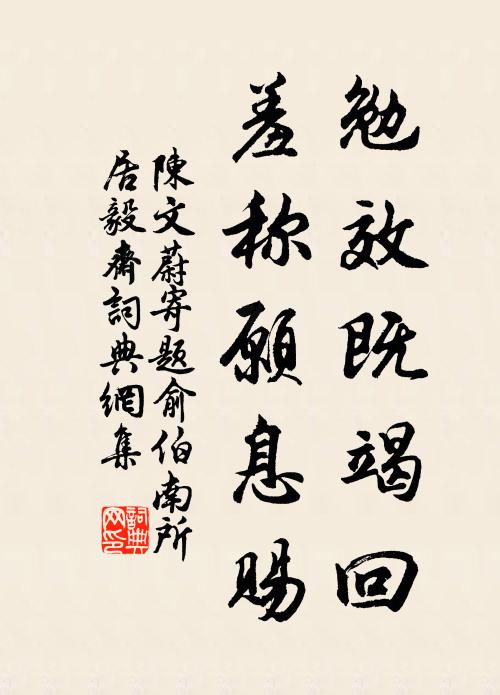 勉效既竭回
羞称願息賜
陳文蔚寄題俞伯南所
居毅齋詞典網集
詞典
网印